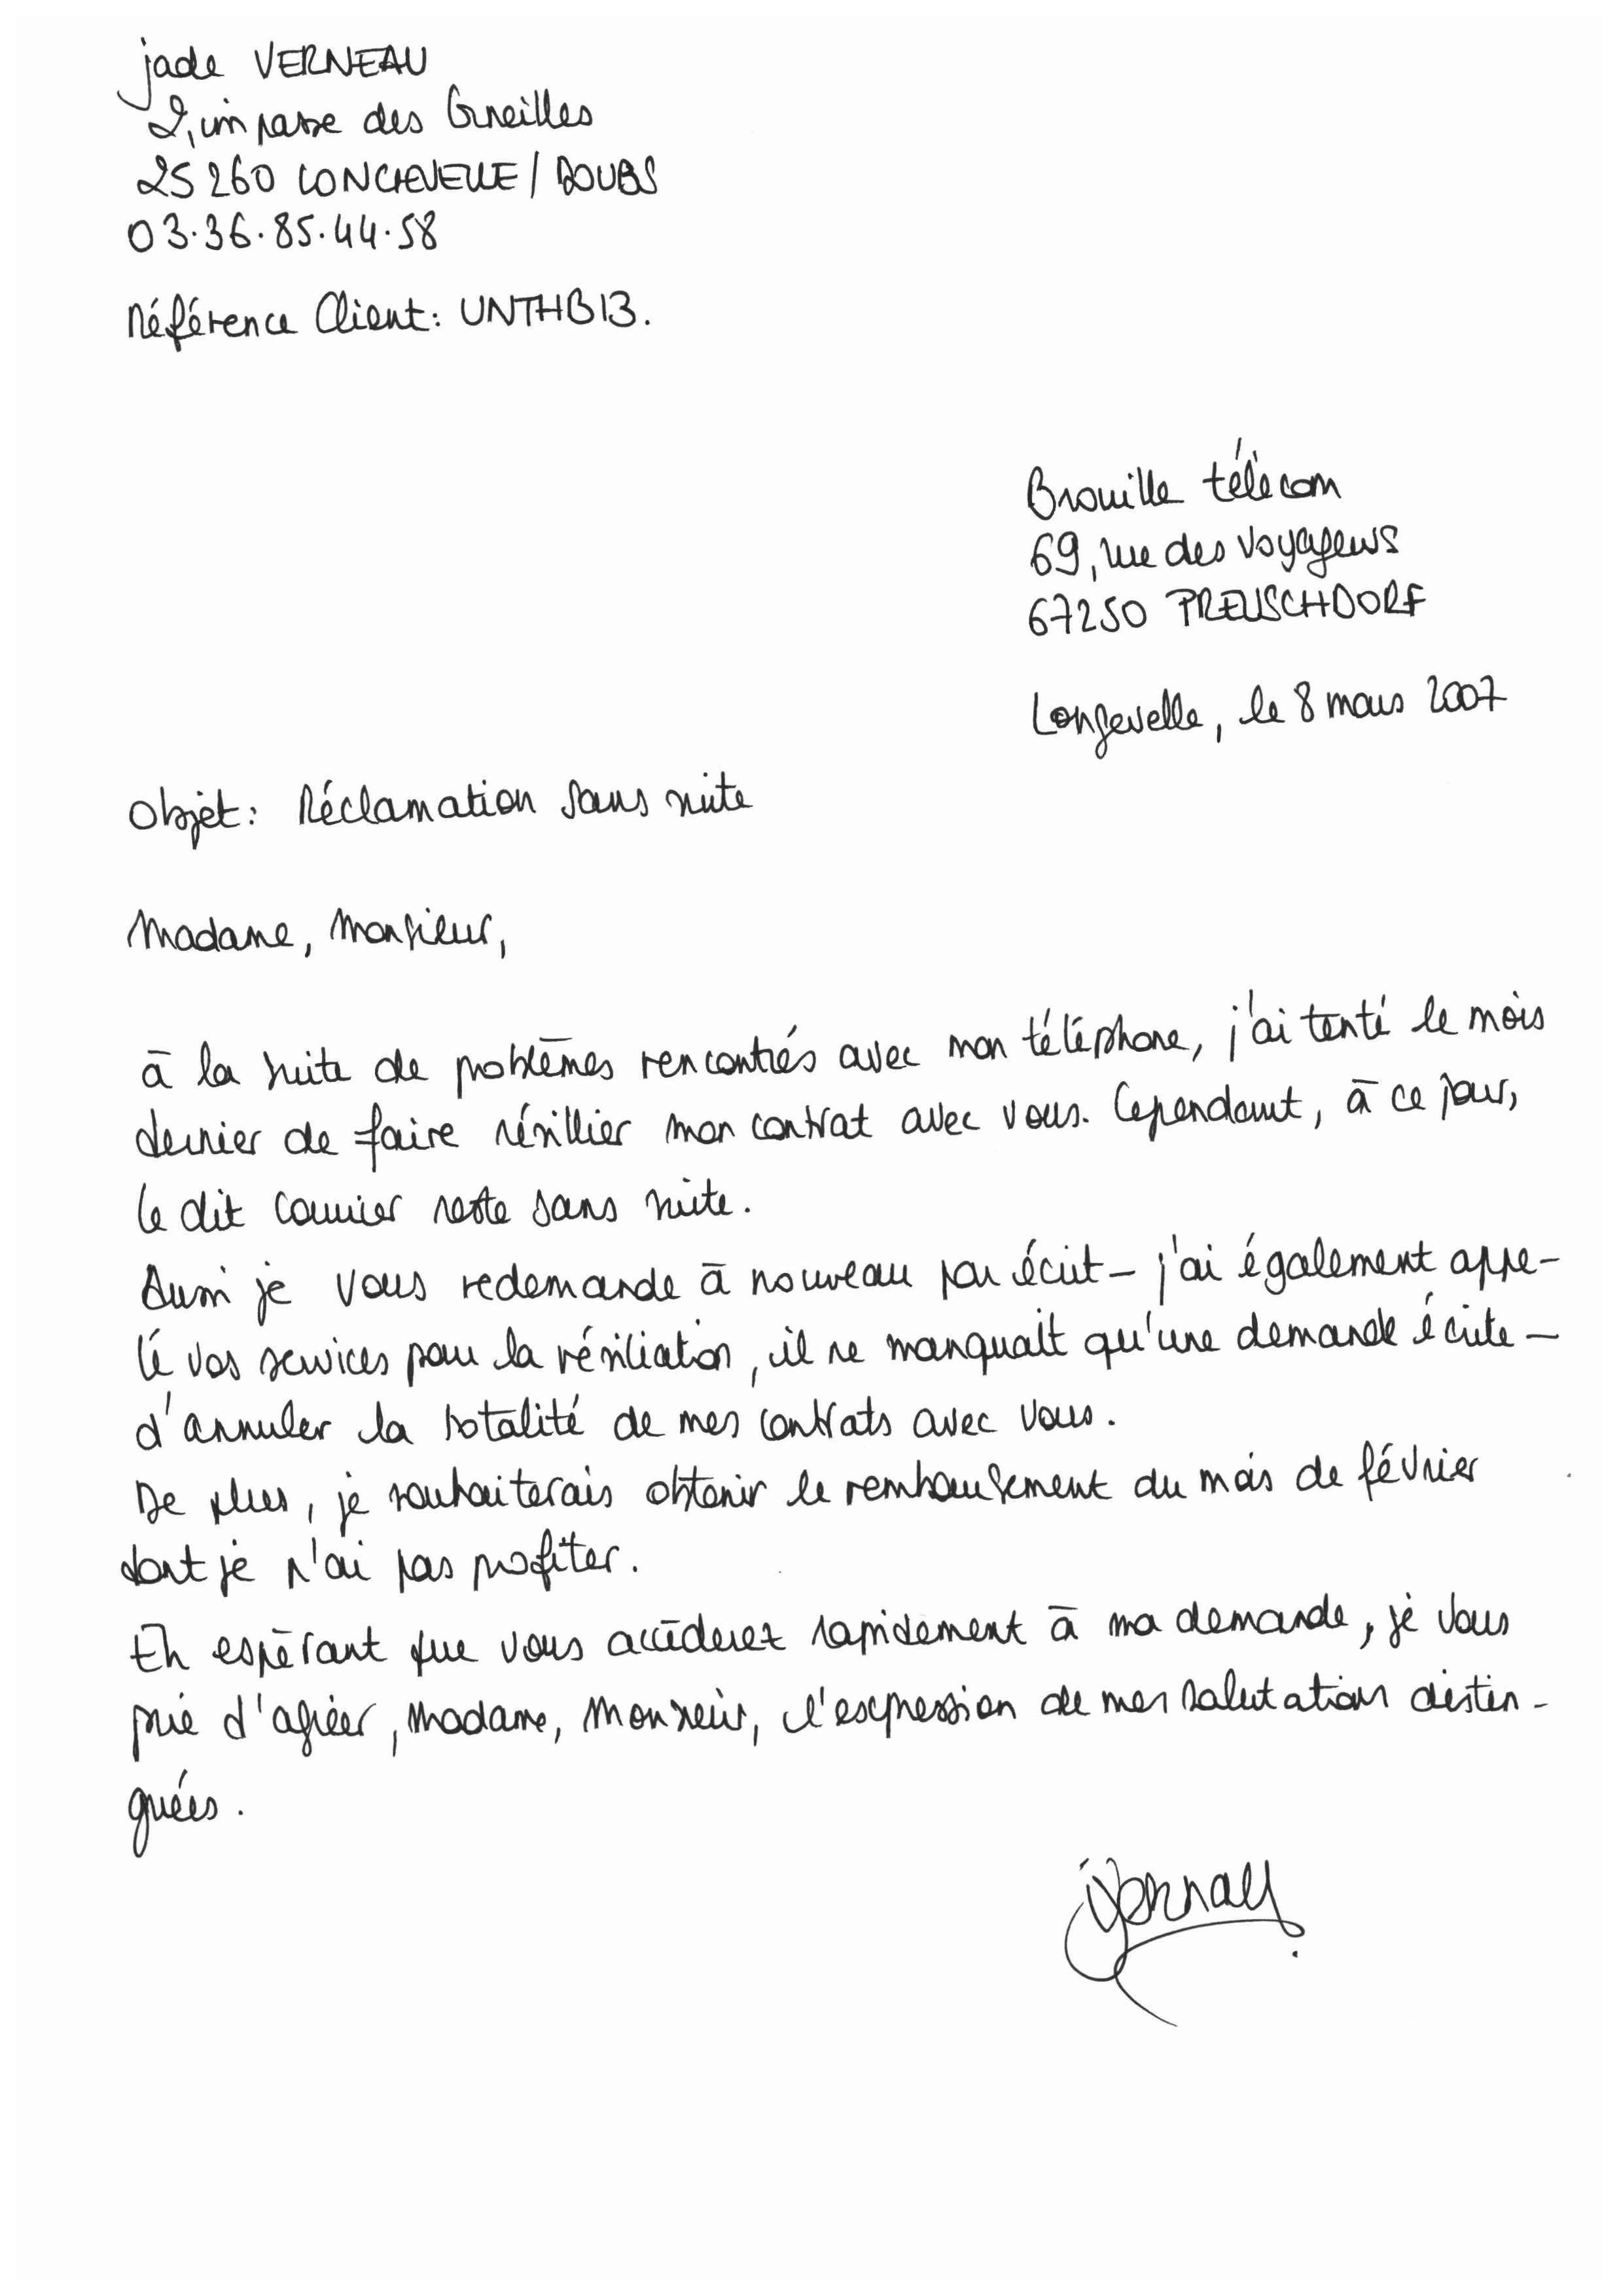 jade VERNEAU
2, impasse des Groseilles
25260 LONGEVELLE / DOUBS
03.36.85.44.58
Référence Client: UNTHB13.
Brouille télécom
69, rue des voyageurs
67250 PREUSCHDORF
Longevelle, le 8 mars 2007
Objet: Réclamation sans suite
Madame, Monsieur,
à la suite de problèmes rencontrés avec mon téléphone, j'ai tenté le mois
dernier de faire résillier mon contrat avec vous. Cependant, à ce jour,
le dit courrier reste sans suite.
Aussi je vous redemande à nouveau par écrit - j'ai également appe-
lé vos services pour la résiliation, il ne manquait qu'une demande écrite -
d'annuler la totalité de mes contrats avec vous.
De plus, je souhaiterais obtenir le remboursement du mois de février
dont je n'ai pas profiter.
En espérant que vous accéderez rapidement à ma demande, je vous
prie d'agréer, Madame, Monsieur, l'expression de mes salutations distin-
guées.